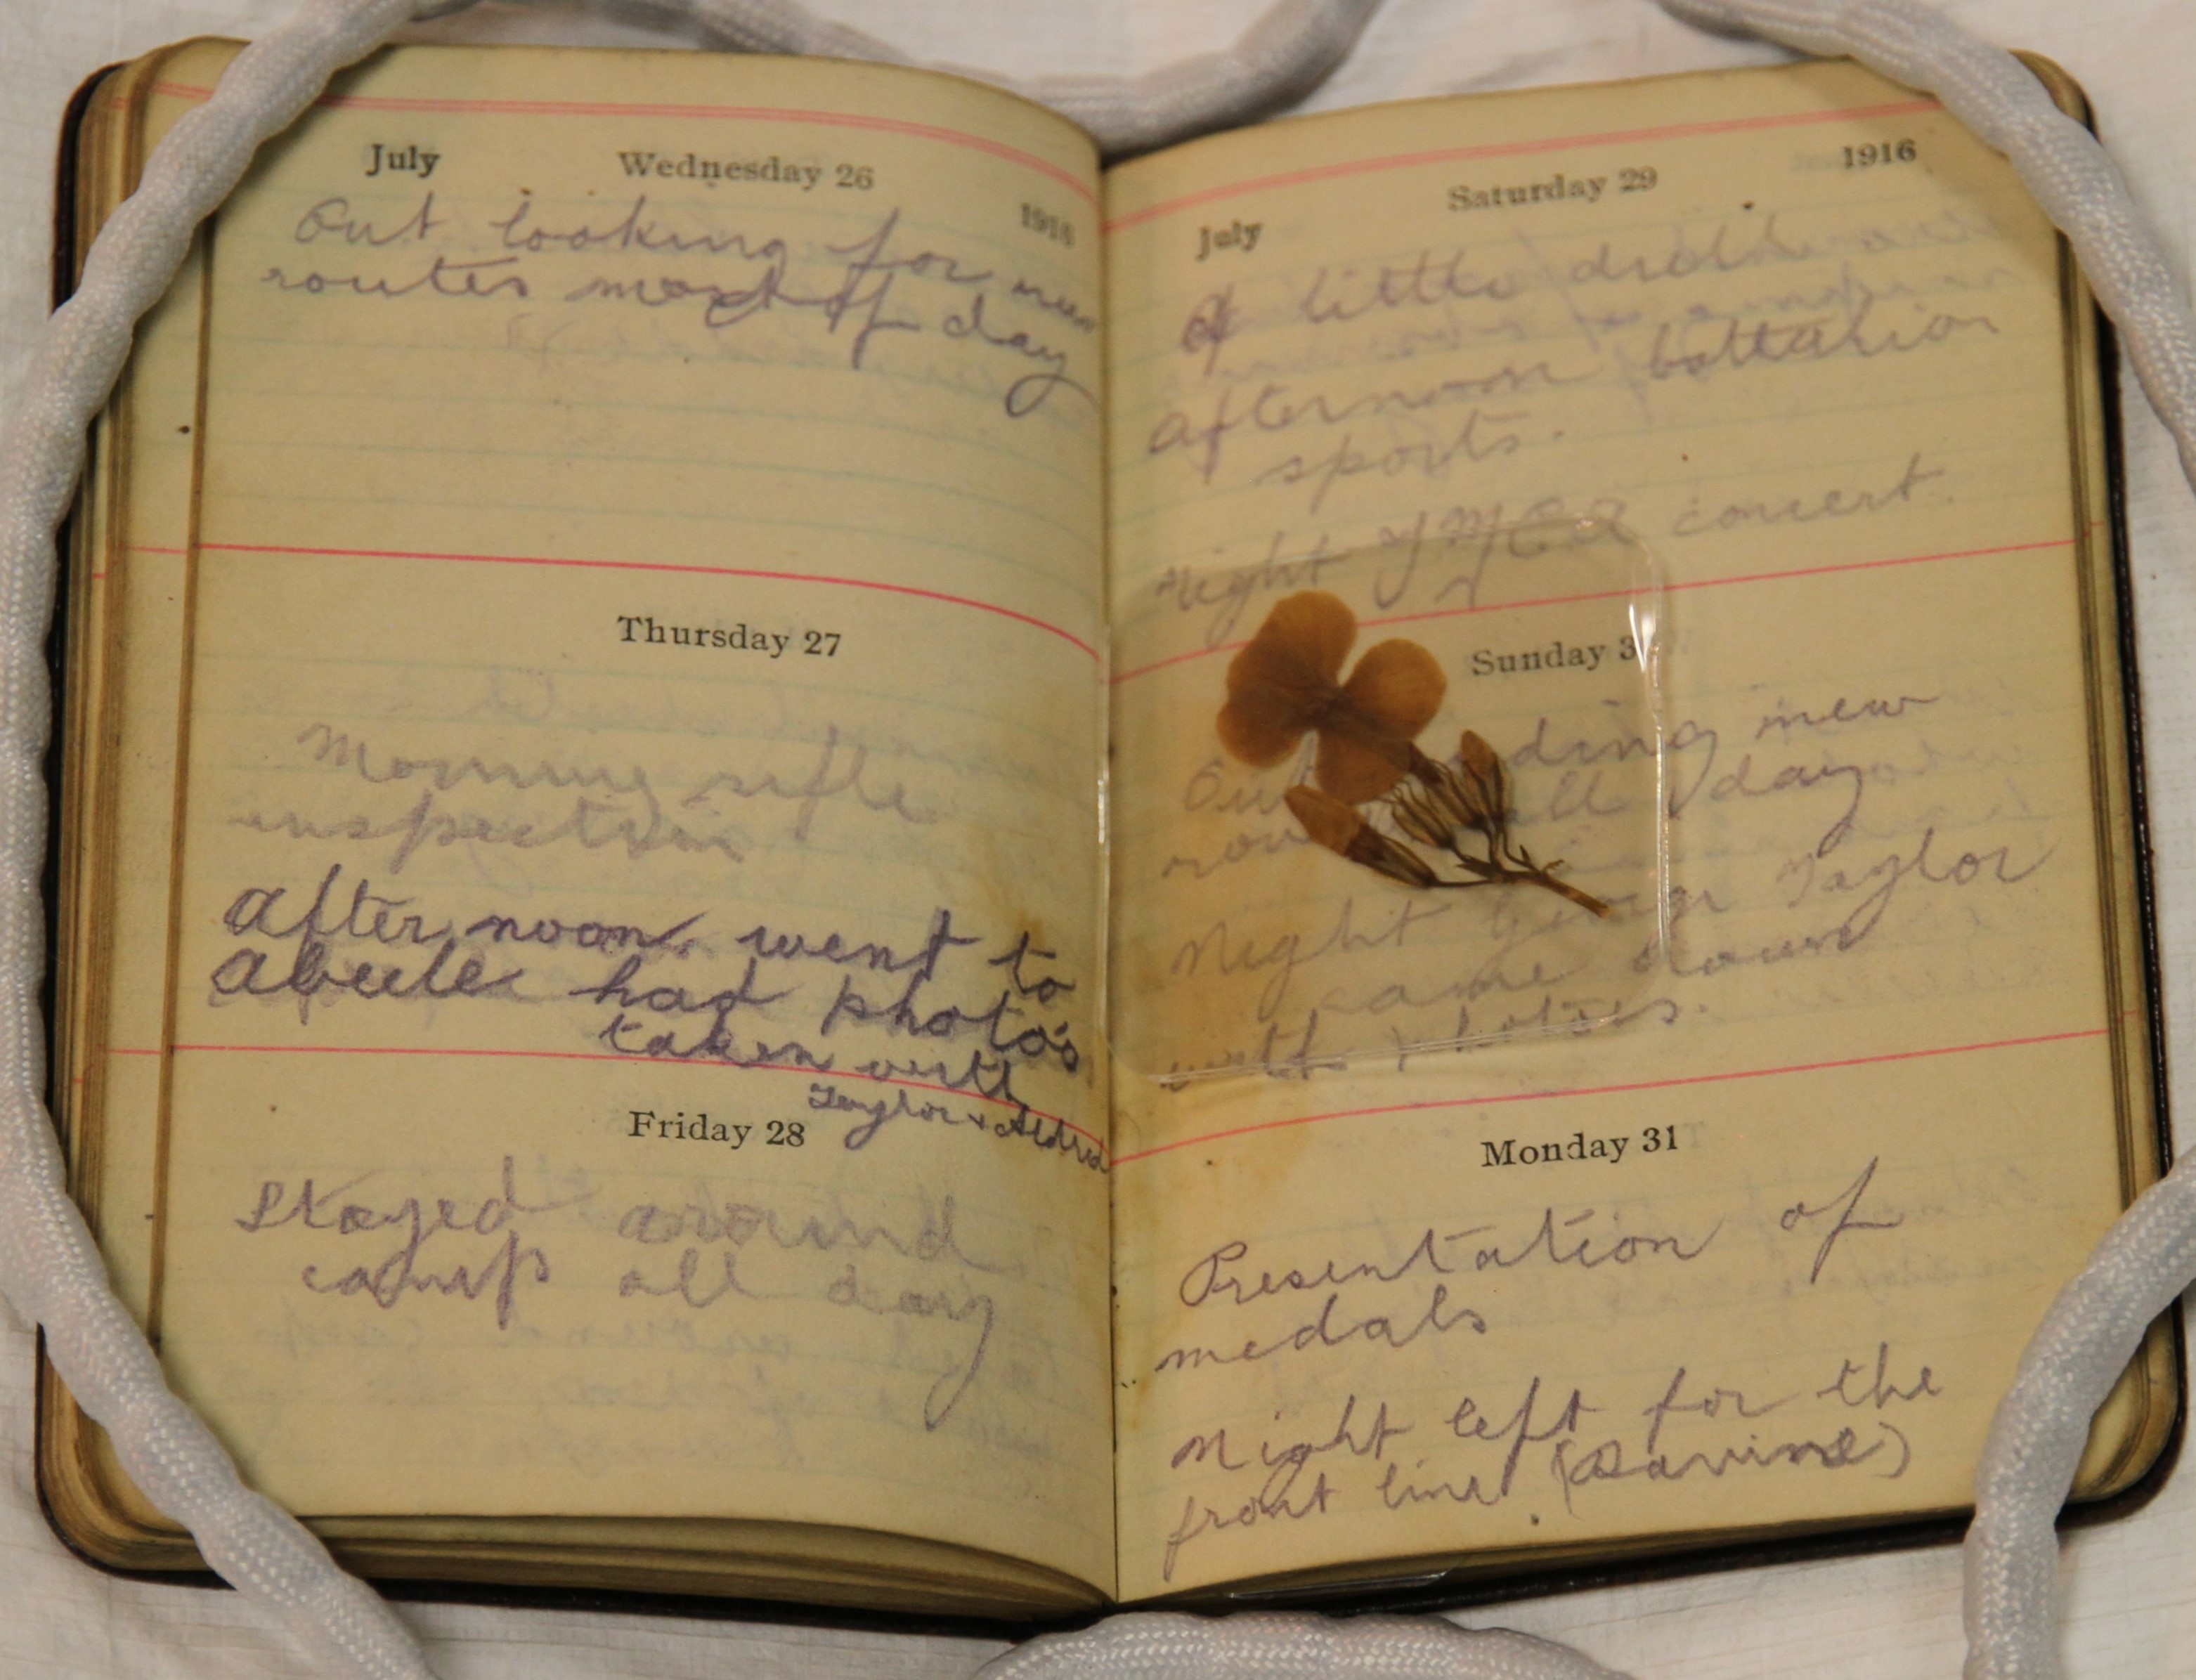 July Wednesday 26 1916
Out looking for new
routes most of day
Thursday 27
Morning rifle
inspection
After noon went to
Abeele had photo's
taken with
Taylor + Aldred
Friday 28
Stayed around
camp all day
July Saturday 29 1916
A little drill
afternoon battalion
sports.
Night YMCA concert.
Sunday 3
Out ding new
rou all day
Night Taylor
came down
with photoes.
Monday 31
Presentation of
medals
Night left for the
front line (Ravine)